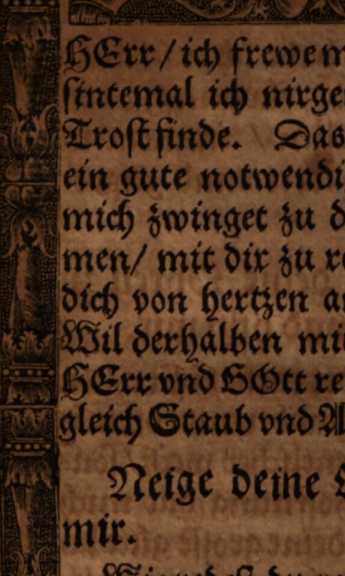 HErr/ ich frewe m
ſintemal ich nirge
Troſt finde. Das
ein gute notwendi
mich zwinget zu d
men/ mit dir zu r
dich von hertzen a
Wil derhalben mi
HErr vnd GOtt re
gleich Staub vnd A
Neige deine
mir.